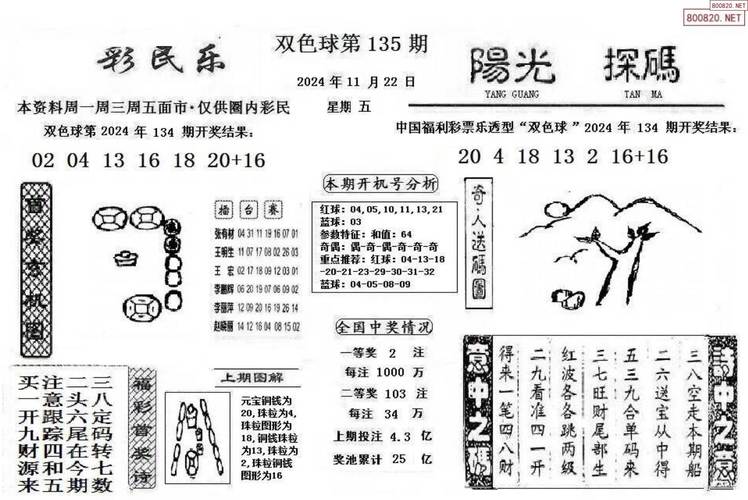 800820.NET
800820.NET
彩民乐
双色球第 135 期
陽光 探碼
YANG GUANG TAN MA
2024 年 11 月 22 日
星期 五
本资料周一周三周五面市·仅供圈内彩民
双色球第 2024 年 134 期开奖结果:
02 04 13 16 18 20+16
中国福利彩票乐透型“双色球 ”2024 年 134 期开奖结果:
20 4 18 13 2 16+16
首奖玄机图
擂台赛
张有材 04 31 11 19 16 07 01
王明生 11 07 17 08 02 26 03
王 宏 02 17 18 09 12 03 01
李鹏辉 06 20 19 07 06 09 02
李丽萍 12 09 20 16 19 26 14
赵晓丽 14 12 16 04 08 15 02
本期开机号分析
红球: 04,05,10,11,13,21
蓝球: 03
参数特征: 和值: 64
奇偶: 偶-奇-偶-奇-奇-奇
重点推荐: 红球: 04-13-18
-20-21-23-29-30-31-32
蓝球: 04-05-08-09
奇·人送碼圖
全国中奖情况
一等奖 2 注
每注 1000 万
二等奖 103 注
每注 34 万
上期投注 4.3 亿
奖池累计 25 亿
三八定码转七数
二头六尾在今期
注意跟踪四和五
买一开九财源来
福彩首奖诗
上期图解
元宝铜钱为
20,珠粒为4,
珠粒图形为
18,铜钱珠粒
为13,珠粒为
2,珠粒铜钱
图形为16
三八空走本期船
二六送宝从中得
五三九合单码来
三七旺财尾部生
红波各各跳两级
二九看准四一开
得来一笔四八财
意中之碼